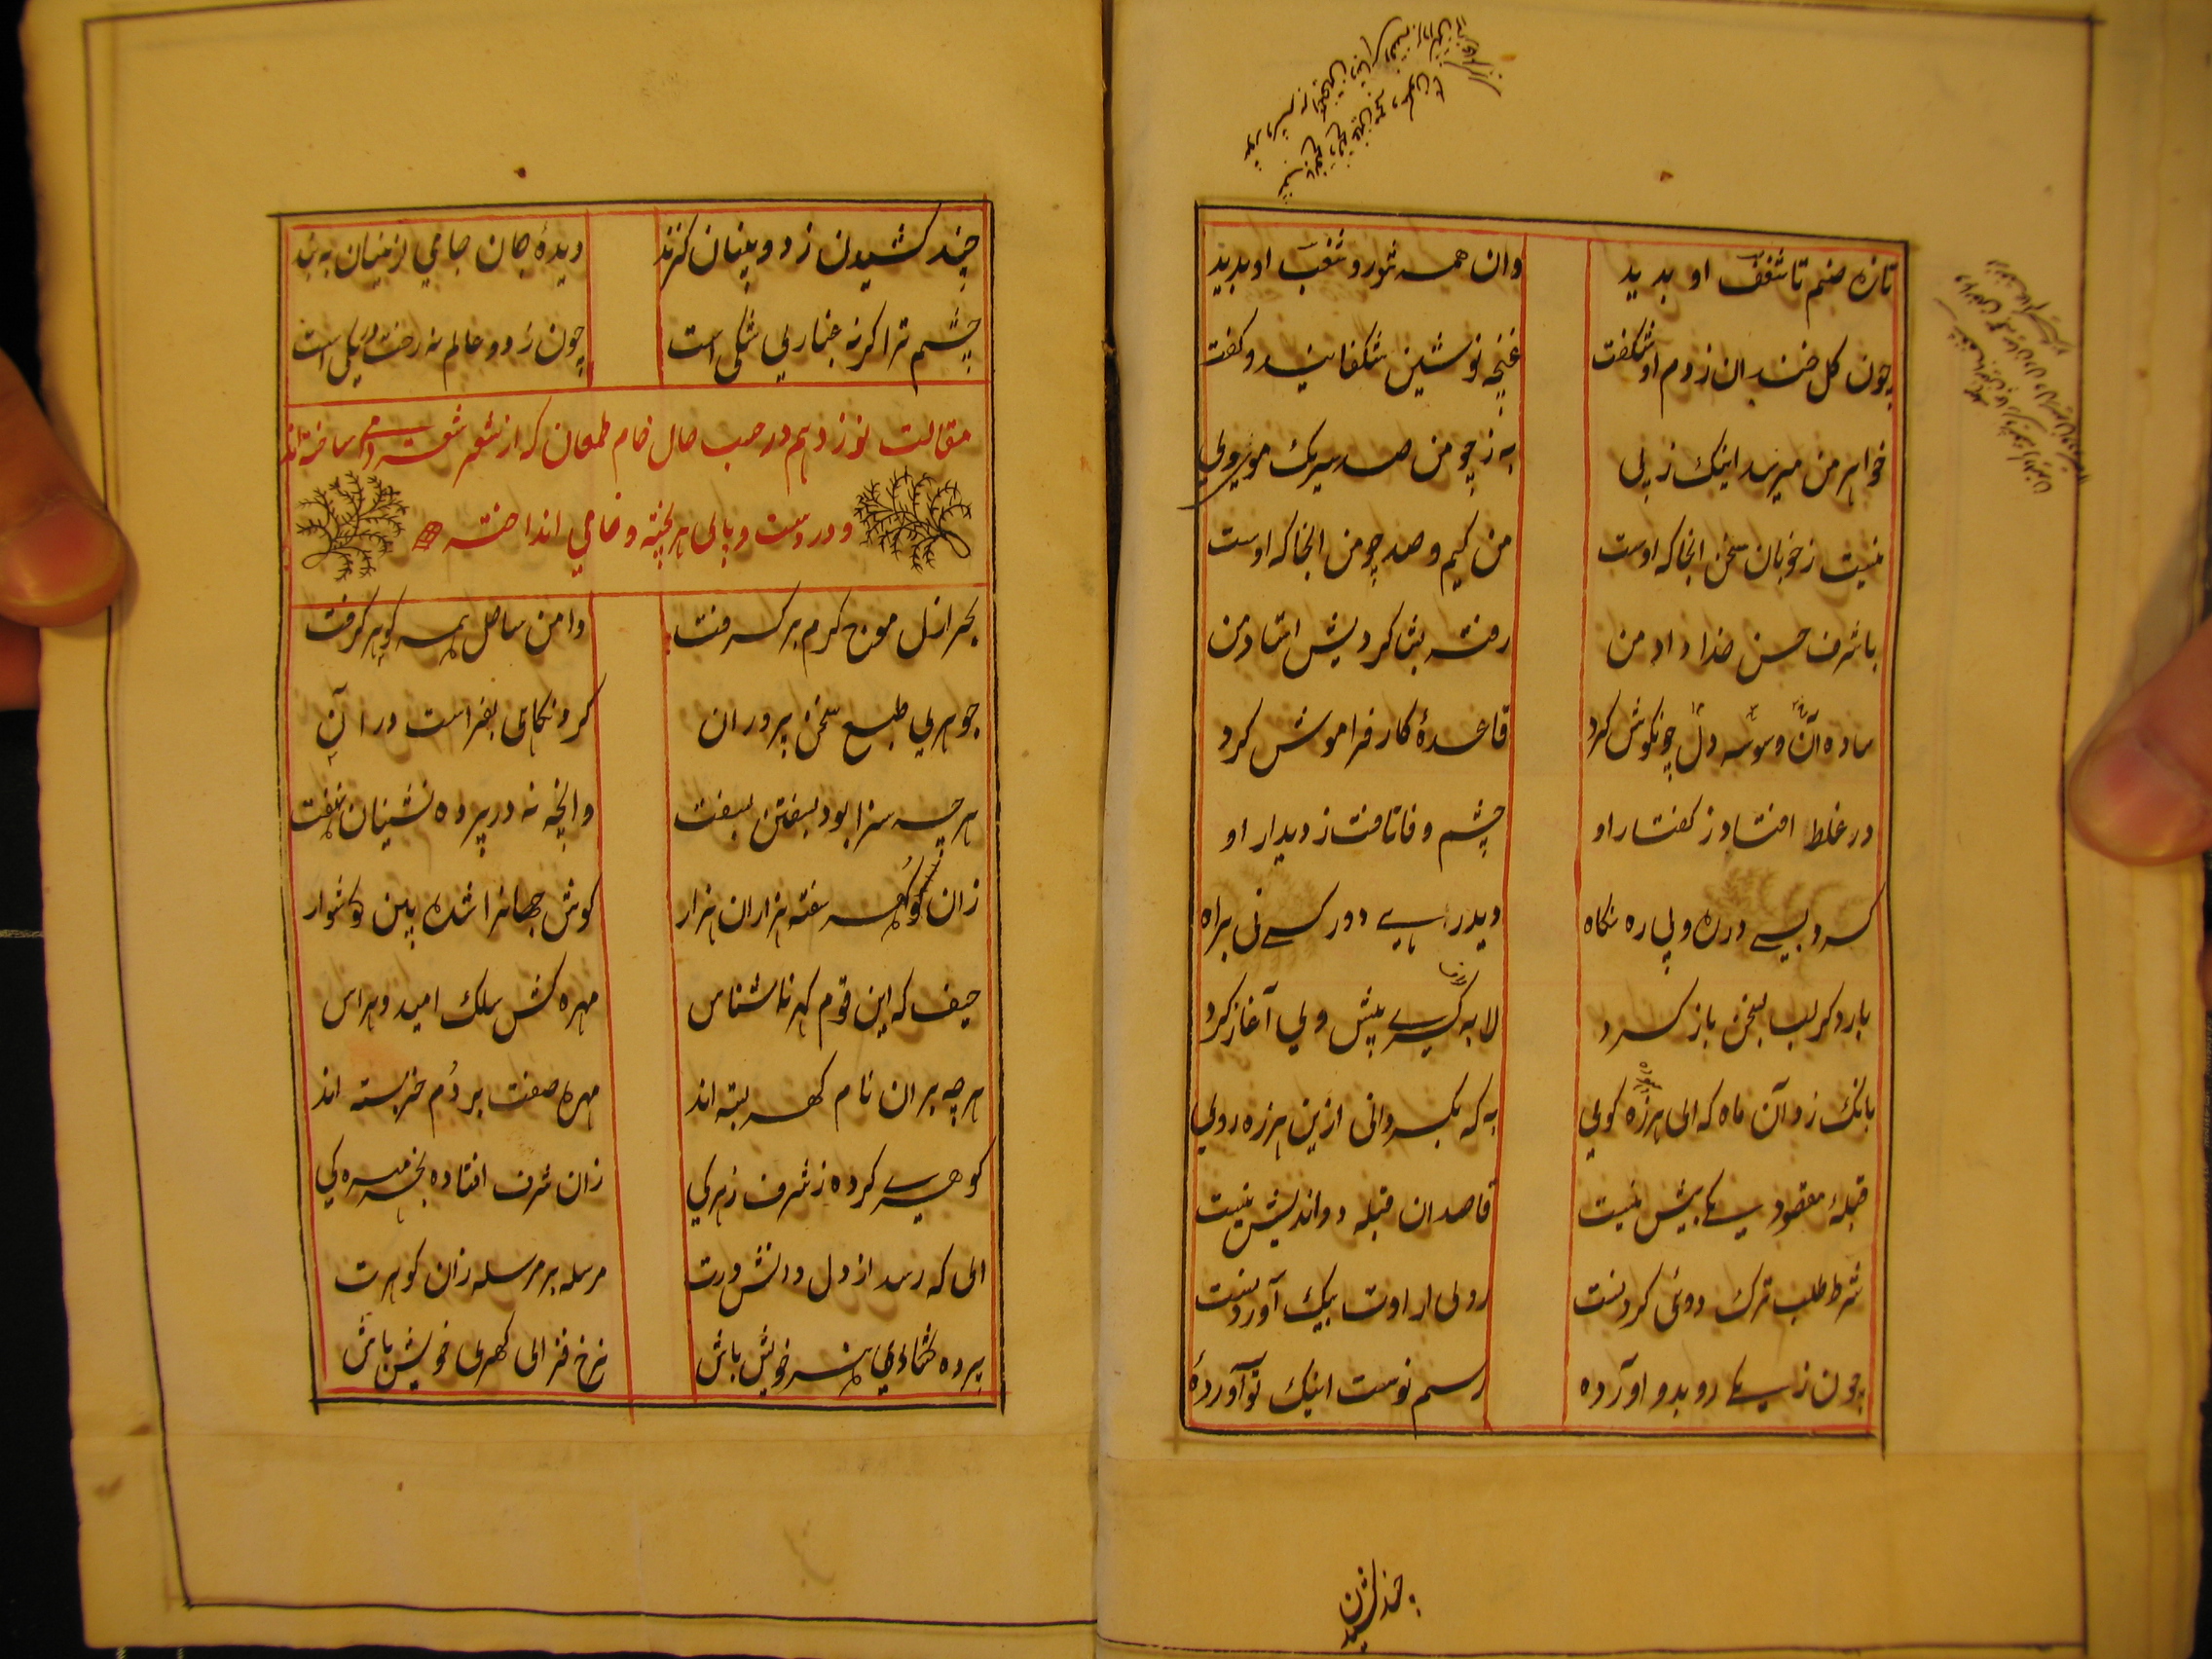 تازه صنم تا شغف او بدید
وان همه شور و شغب او بدید
چون کل خندان ز دم او شکفت
غنچه نوشین شکفانید و کفت
خواهر من میرسد اینک ز پی
به ز چو من صد سر یک موی وی
نیست ز خوبان سخن انجا که اوست
من کیم و صد چو من انجا که اوست
با شرف حسن خدا داد من
رفته بشاکردیش استاد من
ساده آن وسوسه دل چو نکوش کرد
قاعدهٔ کار فراموش کرد
در غلط افتاد ز کفتار او
چشم وفا تافت ز دیدار او
کرد بسے در ره وی ره نکاه
دید رہے دور کسے نی براه
بار دکر لب بسخن باز کرد
لابه کرے پیش وی آغاز کرد
بانک زد آن ماه که ای هرزه کوی
به که بکردانی ازین هرزه روی
قبلهٔ مقصود یکے بیش نیست
قاصد ان قبله دو اندیش نیست
شرط طلب ترک دوئی کردنست
روی ارادت بیک آوردنست
چون ز یکے رو بدو آورده
رسم نوست اینک تو آوردهٔ
چند کشیدن
چند کشیدن ز دو بینان کزند
دیدهٔ جان جامی ازینیان به بند
چشم ترا کرنه غبار شکی است
چون ز دو عالم نه رخت در یکی است
مقالت نوزدهم در حسب حال خام طمعان که از شعر شعت دامے ساخته اند
و در دست و پای هر پخته و خامی انداخته
بحر ازل موج کرم برکرفت
دامن ساحل همه کوهر کرفت
جوهری طبع سخن پروران
کرد نکاهی بفراست در آن
هر چه سزا بود بسفتن بسفت
وانچه نه در پرده نشینان نهفت
زان کهر سفته هزاران هزار
کوش جهانرا شده بین کوشوار
حیف که این قوم کهر ناشناس
مهره کش سلک امید و هراس
هر چه بران نام کهر بسته اند
مهره صفت بر دم خر بسته اند
کوهرے کرده ز شرف زهرکی
زان شرف افتاده بخر مهرکی
ای که رسد از دل دانش ورت
مرسله بر مرسله زان کوهرت
پرده کشای هنر خویش باش
نرخ فزای کهر خویش باش